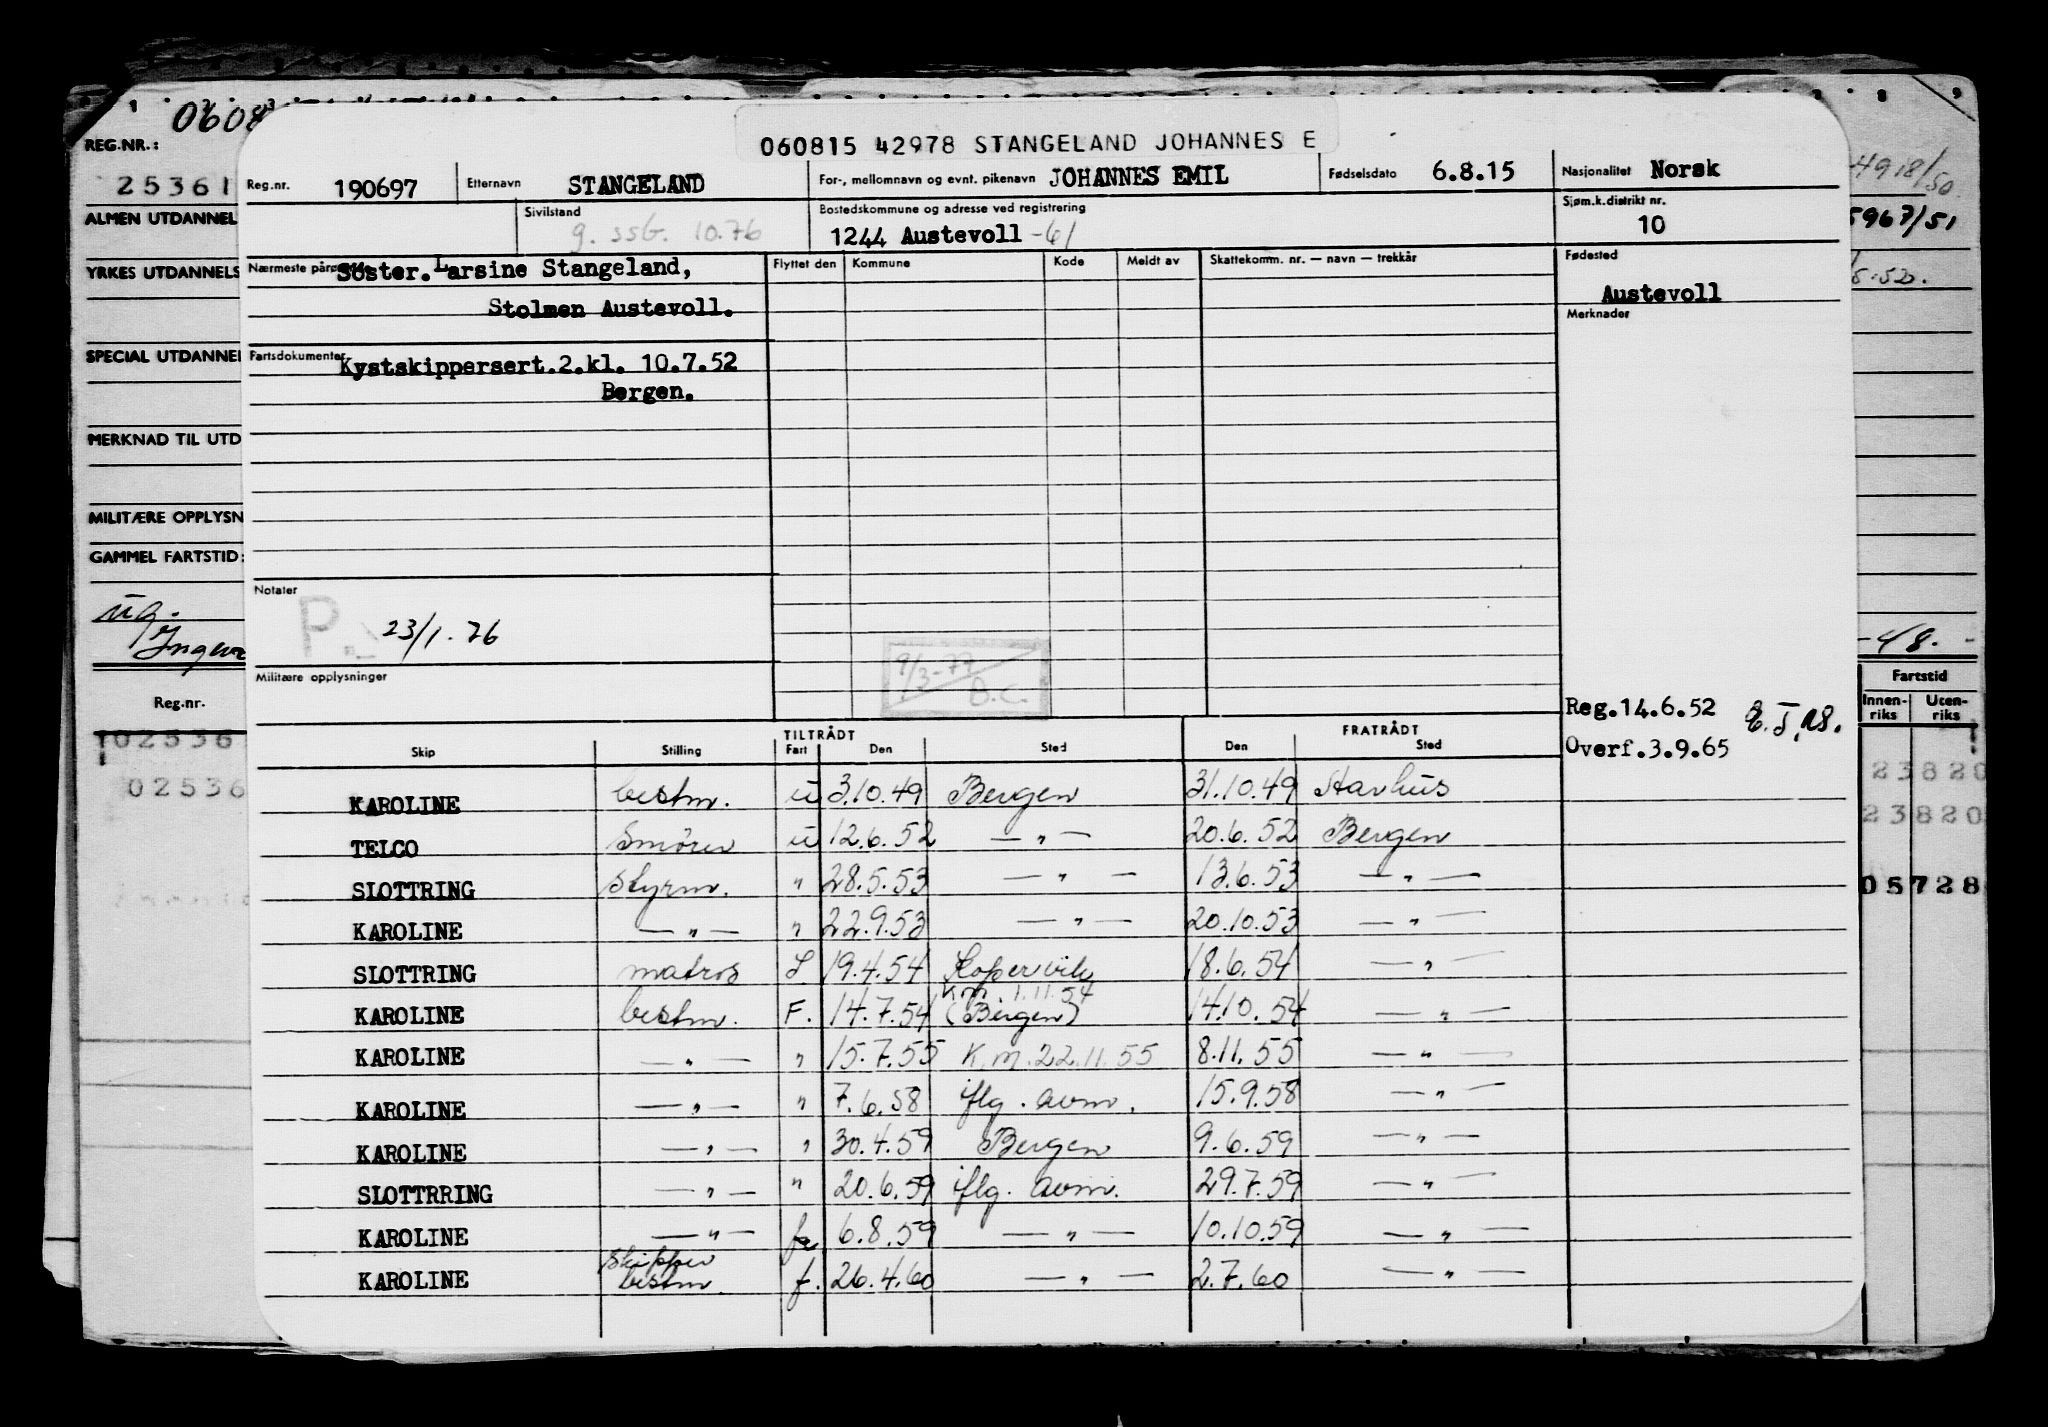 0608
060815 42978 STANGELAND JOHANNES E
REG.NR.:
25361
Reg.nr. 190697 Etternavn STANGELAND For-, mellomnavn og evnt. pikenavn JOHANNES EMIL Fødselsdato 6.8.15 Nasjonalitet Norsk
4918/50
ALMEN UTDANNEL
Sivilstand g. ssb. 10.76 Bostedskommune og adresse ved registrering 1244 Austevoll -61 Sjøm.k.distrikt nr. 10
5967/51
YRKES UTDANNELS
Nærmeste Söster. Larsine Stangeland, Flyttet den Kommune Kode Meldt av Skattekomm. nr. — navn — trekkår Fødested
Stolmen Austevoll. Austevoll
Merknader
SPECIAL UTDANNE
Fartsdokumenter Kystskippersert.2.kl. 10.7.52
Bergen.
MERKNAD TIL UTD
MILITÆRE OPPLYSN
GAMMEL FARTSTID:
Notater
P. 23/1.76
9/3-77
B.C.
-48.-
Militære opplysninger
Fartstid
Reg.nr. Innen-riks Uten-riks
Reg.14.6.52
Overf.3.9.65
TILTRÅDT FRATRÅDT
Skip Stilling Fart Den Sted Den Sted
02536
02536
23820
23820
05728
KAROLINE bestm. u 3.10.49 Bergen 31.10.49 Stavhus
TELCO Smörer u 12.6.52 — " — 20.6.52 Bergen
SLOTTRING styrm. " 28.5.53 — " — 13.6.53 — " —
KAROLINE — " — " 22.9.53 — " — 20.10.53 — " —
SLOTTRING matros S. 19.4.54 Kopervik 18.6.54 — " —
K.m. 1.11.54
KAROLINE bestm. F. 14.7.54 (Bergen) 14.10.54 — " —
KAROLINE — " — " 15.7.55 K.m.22.11.55 8.11.55 — " —
KAROLINE — " — " 7.6.58 iflg. avm. 15.9.58 — " —
KAROLINE — " — " 30.4.59 Bergen 9.6.59 — " —
SLOTTRRING — " — " 20.6.59 iflg. avm. 29.7.59 — " —
KAROLINE — " — 6.8.59 — " — 10.10.59 — " —
skipper
KAROLINE bestm. f. 26.4.60 — " — 2.7.60 — " —